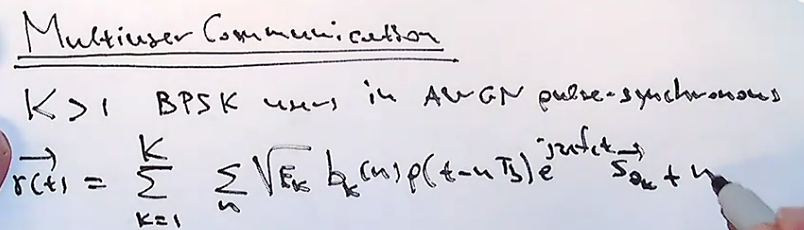 Multiuser Communication
K > 1 BPSK users in AWGN pulse-synchronous
r⃗(t) = Σ_{k=1}^{K} Σ_n √E_k b_k(n) p(t-nT_s) e^{j2πf_ct} s⃗_{θ_k} + n